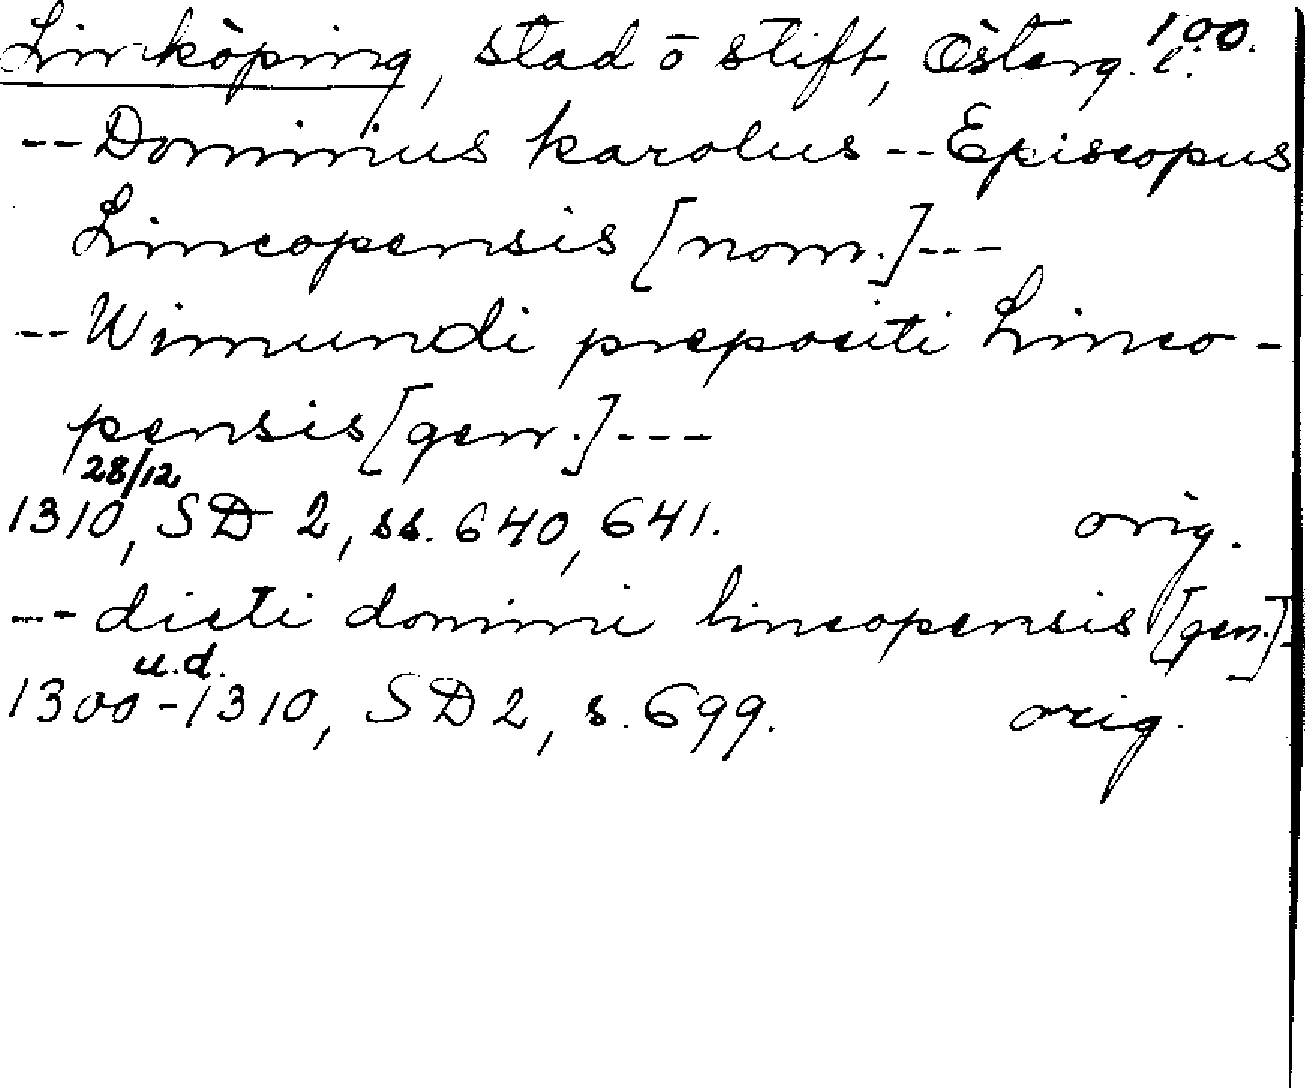 Linköping, stad o stift, Österg. l. 100.
-- Dominus karolus -- Episcopus
Lincopensis [nom.] ---
-- Wimundi prepositi Linco-
pensis [gen.] ---
28/12
1310, SD 2, ss. 640, 641. orig.
--- dicti domini lincopensis [gen.] -
u.d.
1300-1310, SD 2, s. 699. orig.